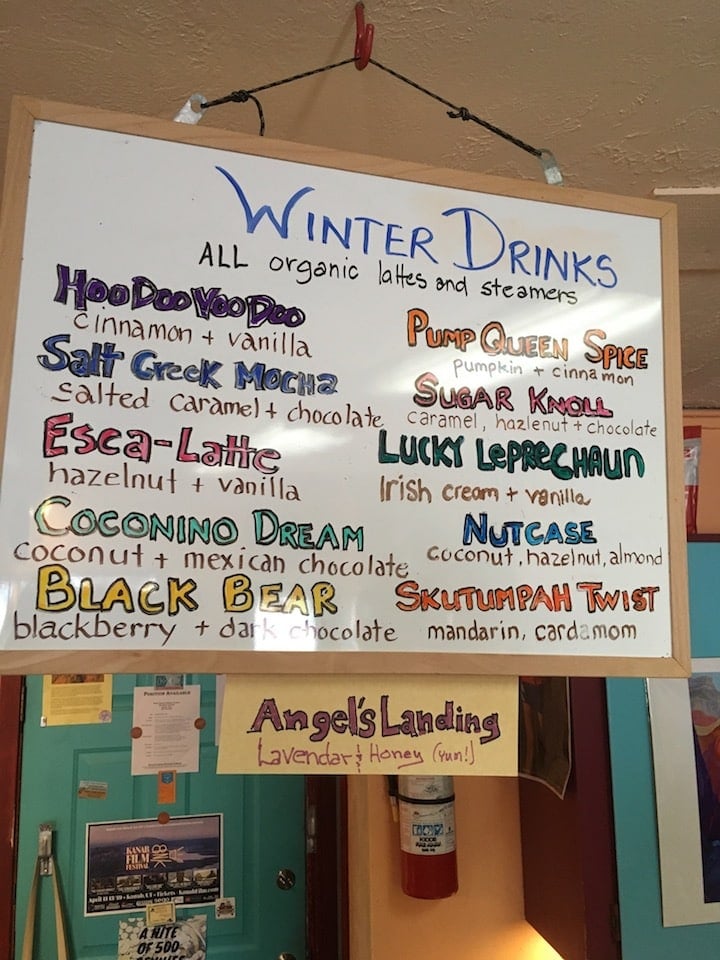 WINTER DRINKS
ALL organic lattes and steamers
HooDooVooDoo
cinnamon + vanilla
Salt Creek Mocha
salted caramel + chocolate
Esca-Latte
hazelnut + vanilla
COCONINO DREAM
coconut + mexican chocolate
BLACK BEAR
blackberry + dark chocolate
PUMP QUEEN SPICE
pumpkin + cinnamon
SUGAR KNOLL
caramel, hazlenut + chocolate
LUCKY LEPRECHAUN
Irish cream + vanilla
NUTCASE
coconut, hazelnut, almond
SKUTUMPAH TWIST
mandarin, cardamom
Angel's Landing
Lavendar & Honey (yum!)
POSITION AVAILABLE
KANAB
FILM
FESTIVAL
KIDDE
A NITE
OF 500